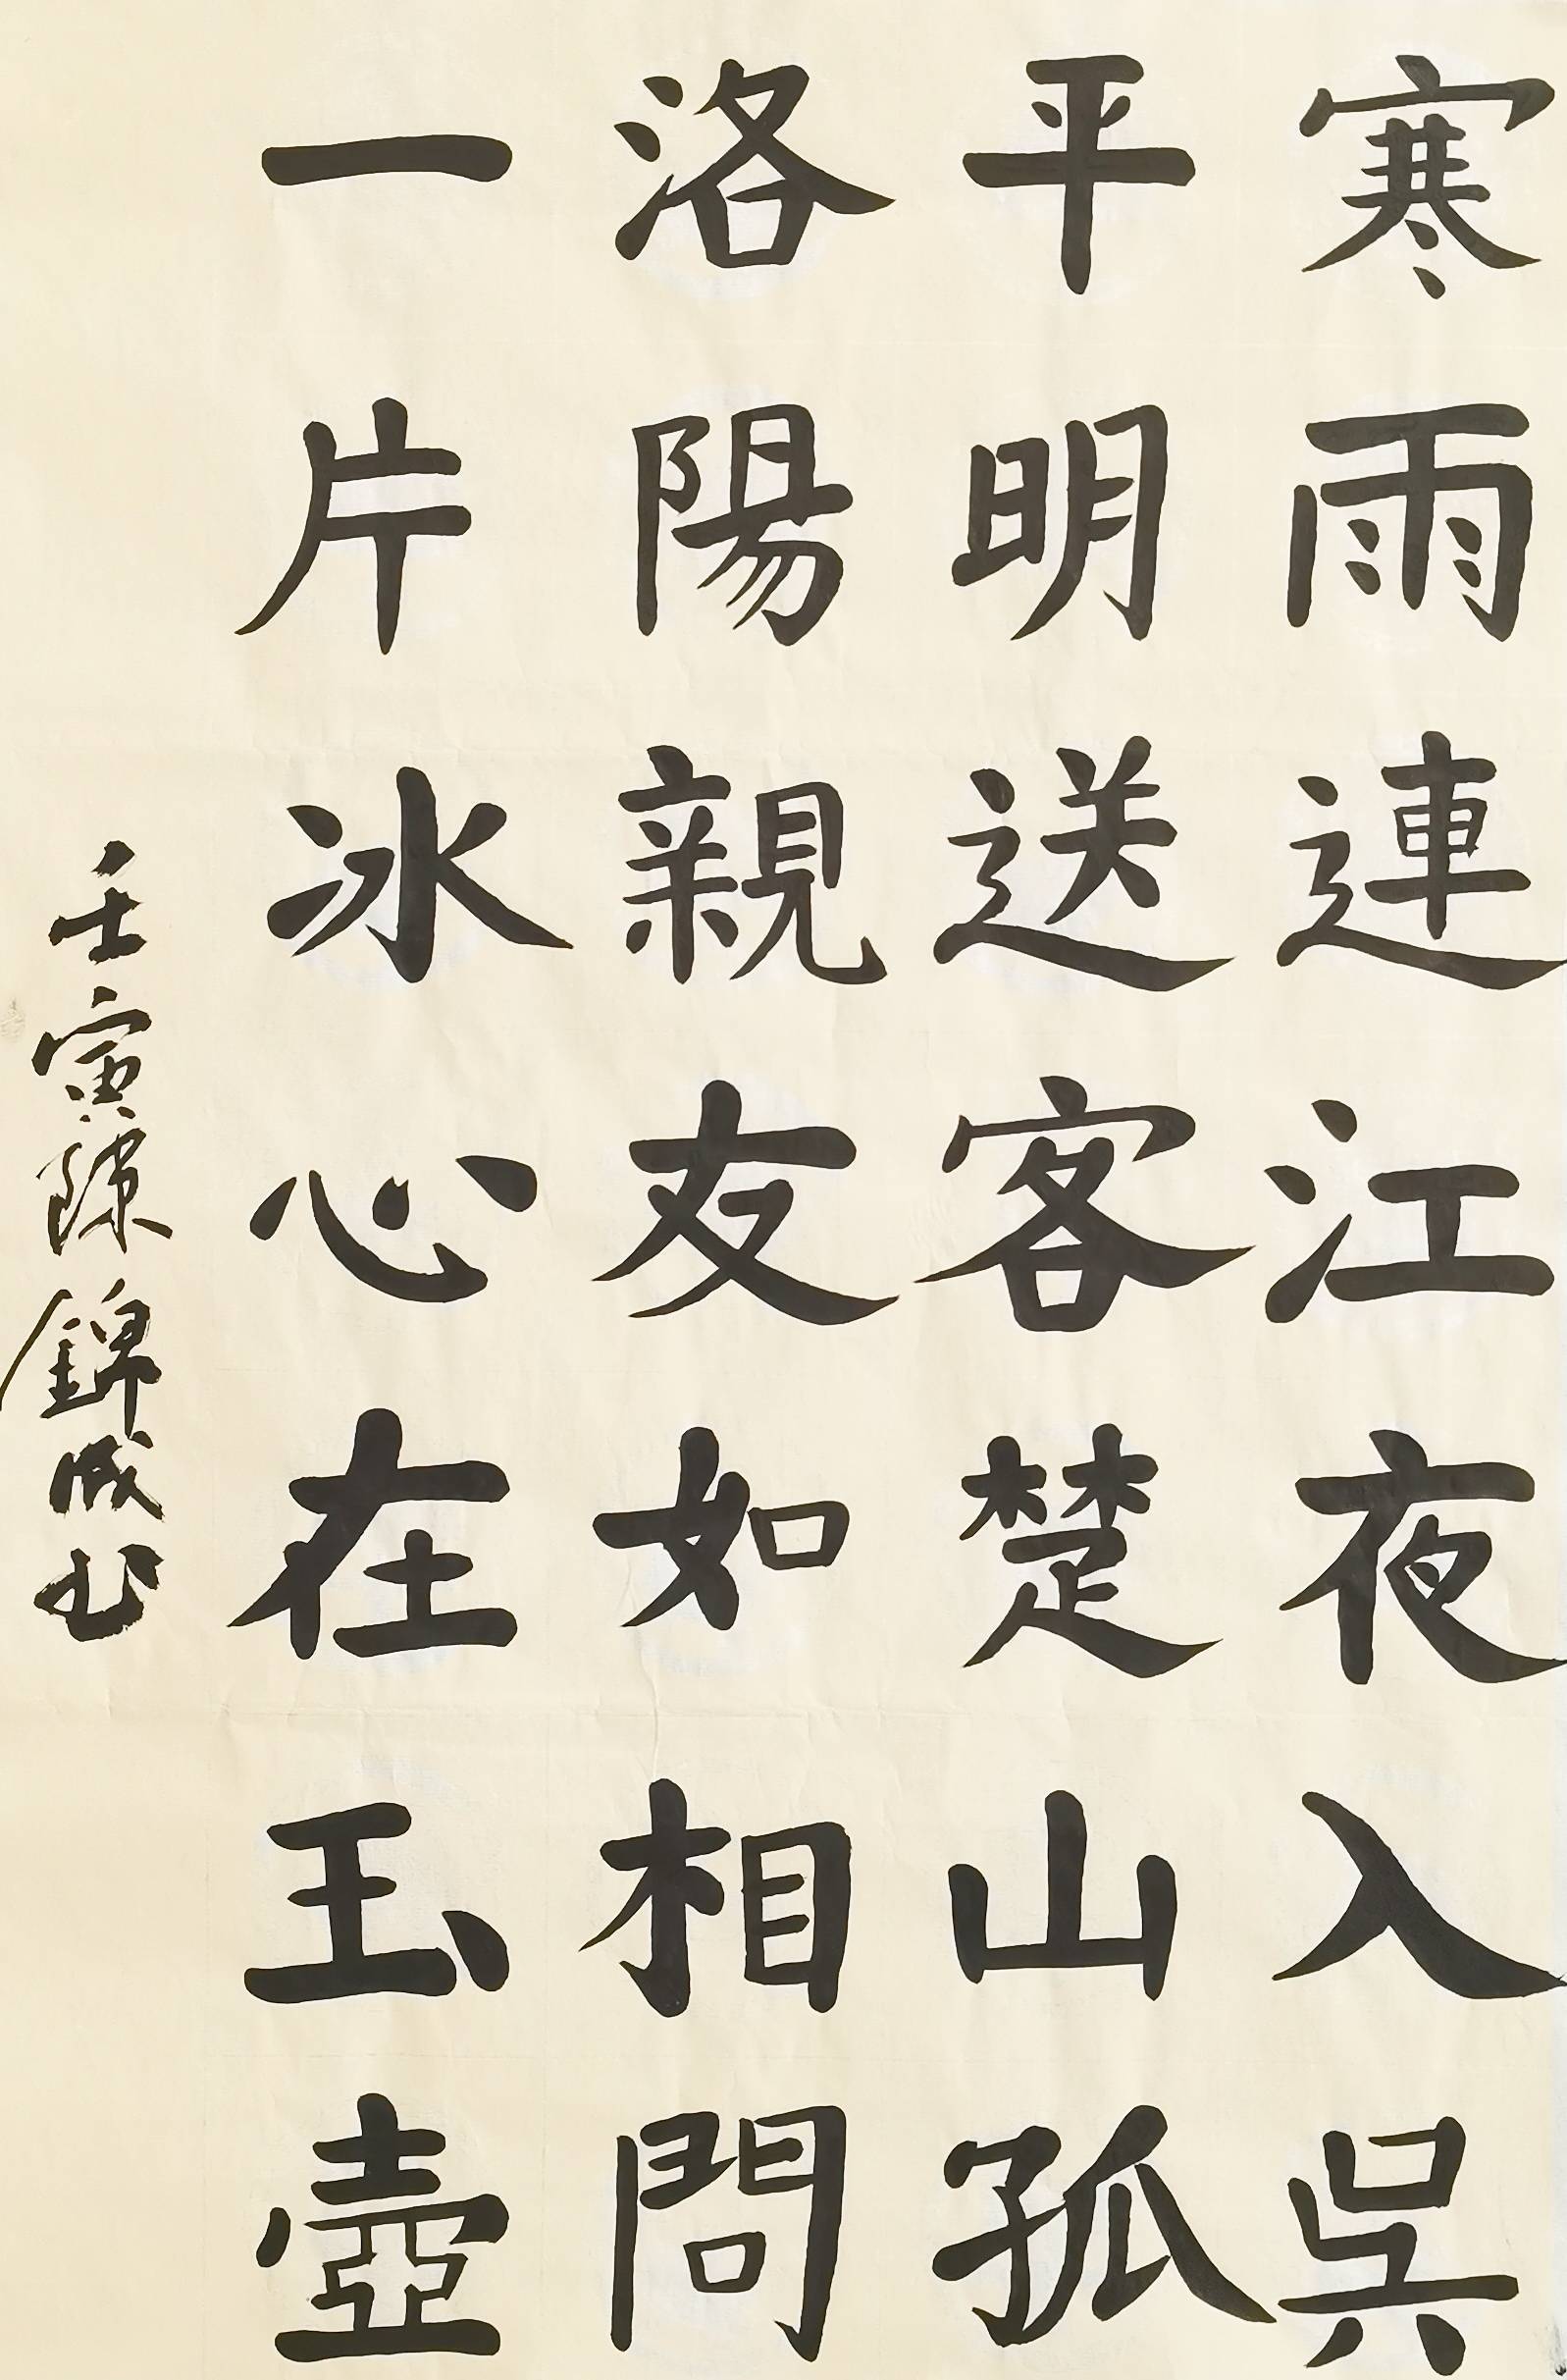 寒雨連江夜入吳
平明送客楚山孤
洛陽親友如相問
一片冰心在玉壺
壬寅陳錦成书